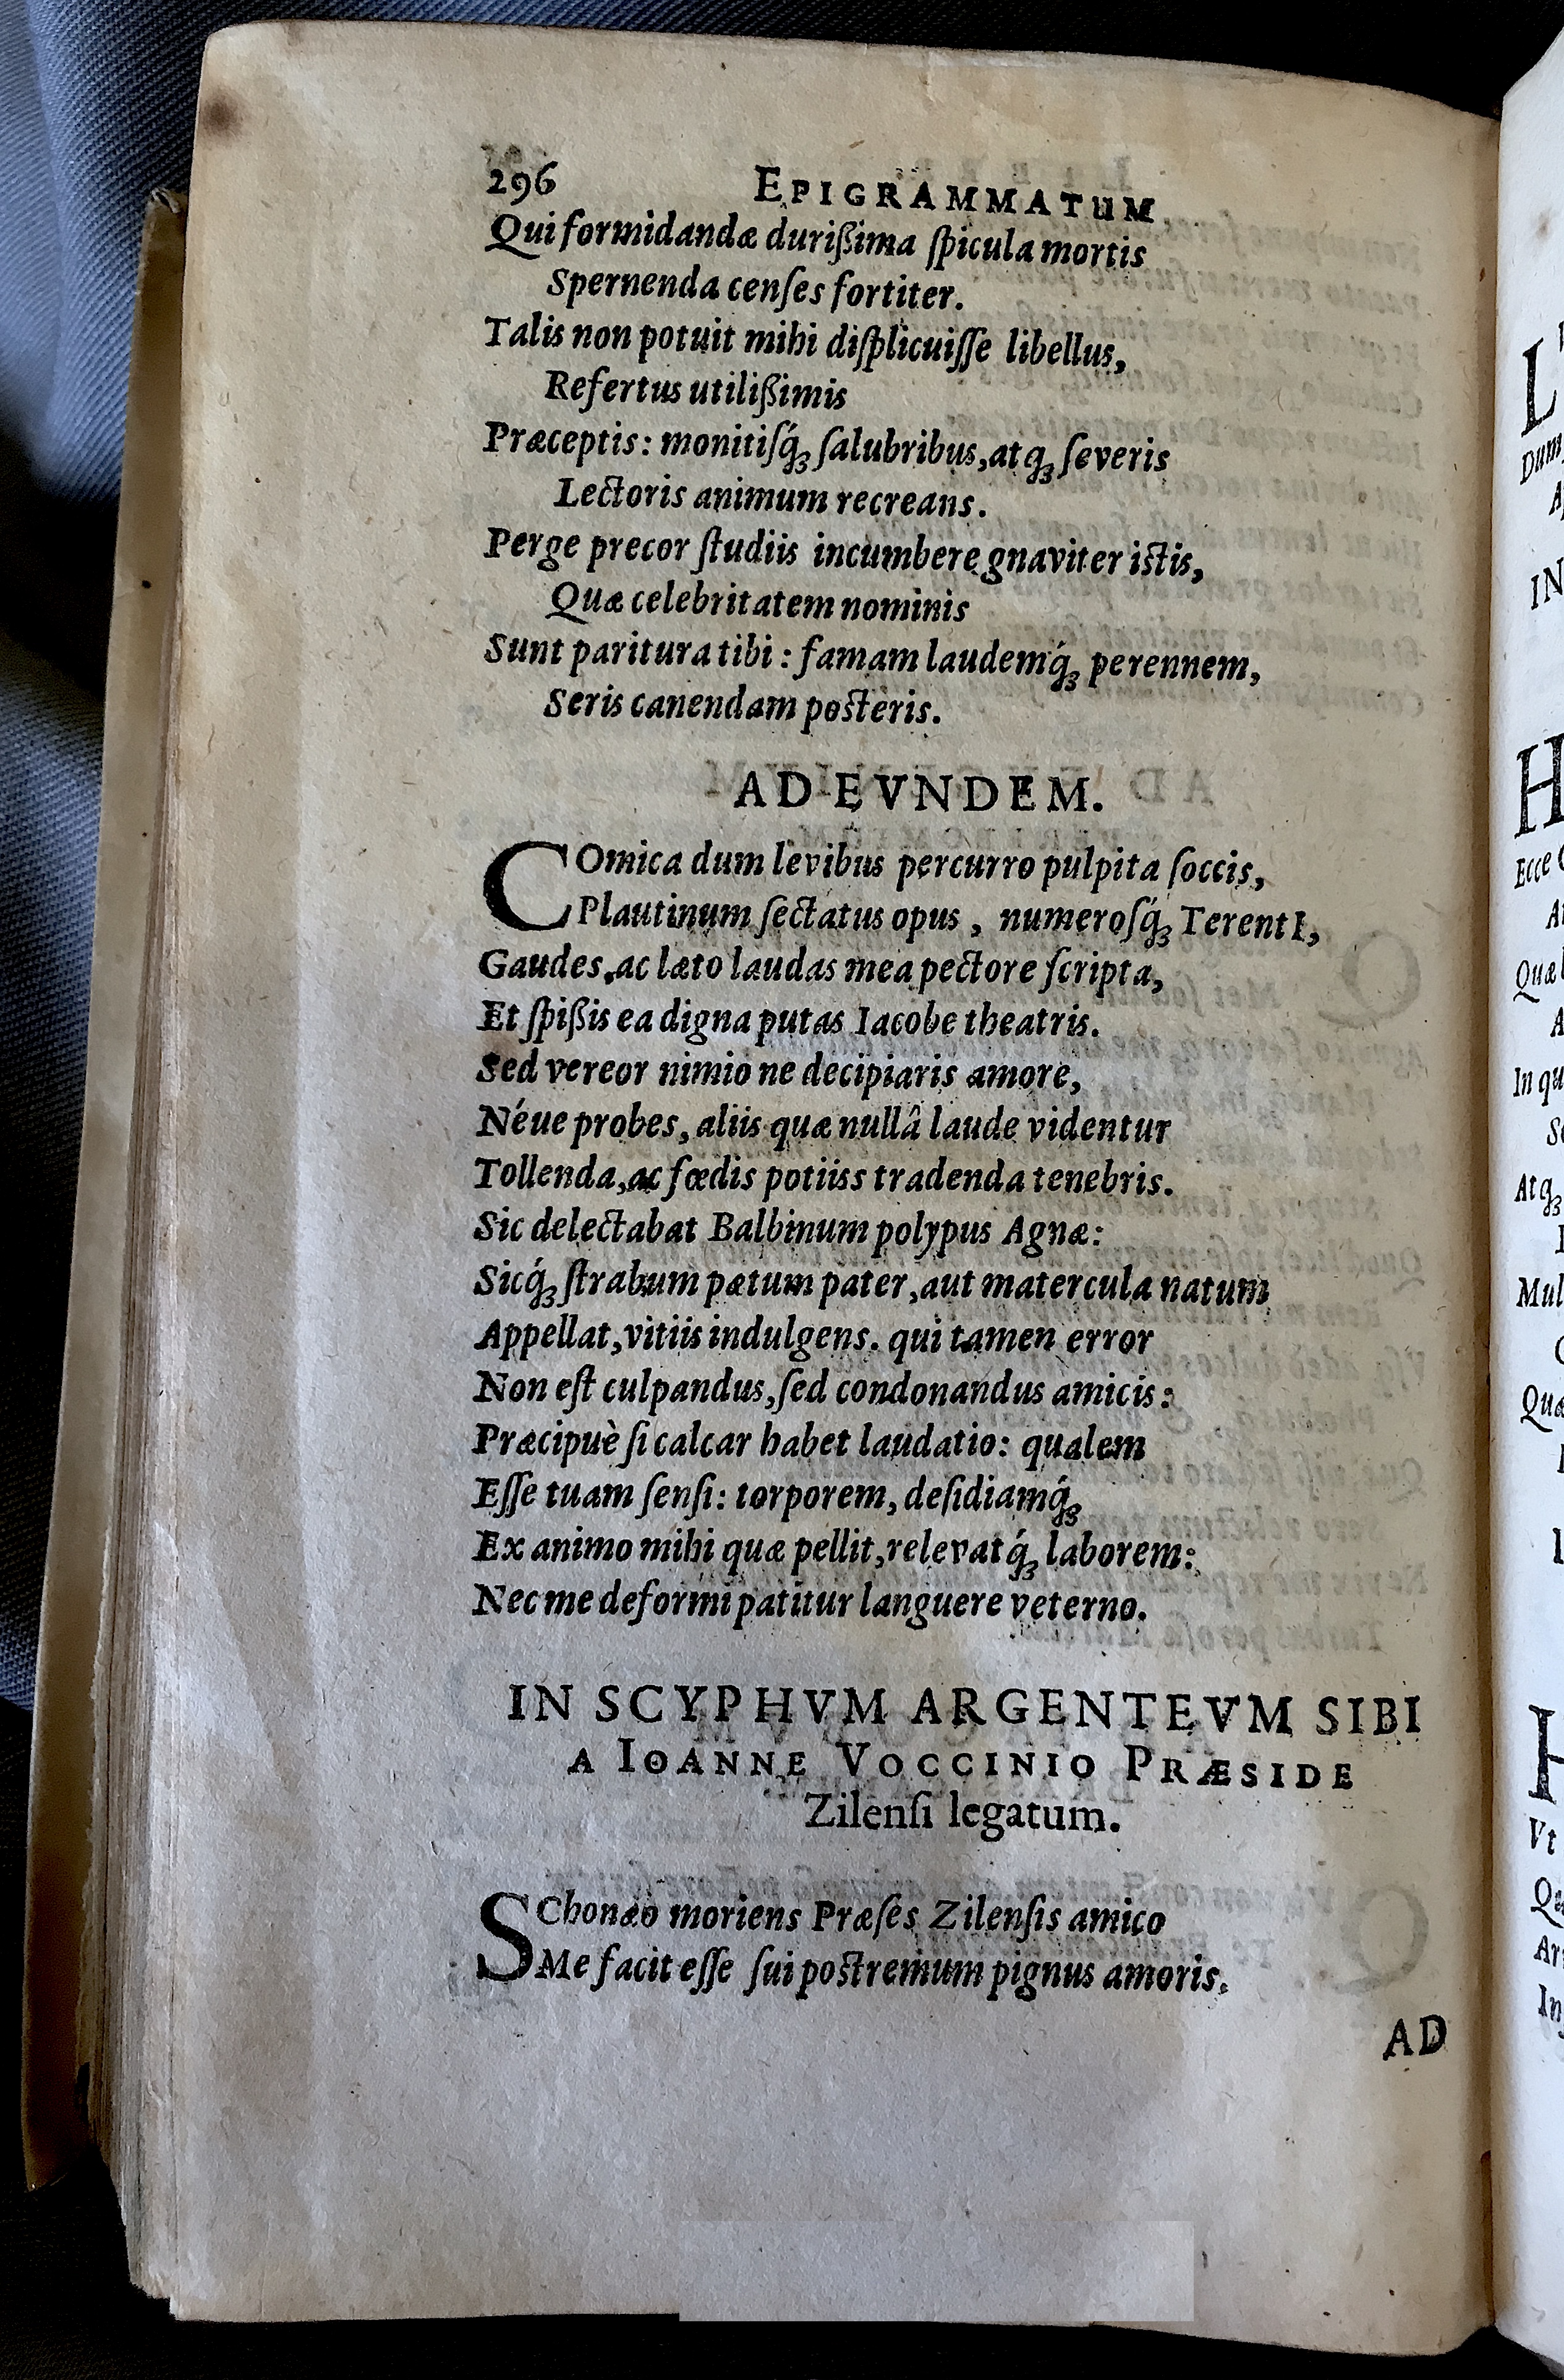 296 EPIGRAMMATUM
Qui formidandæ durißima ſpicula mortis
Spernenda cenſes fortiter.
Talis non potuit mihi diſplicuiſſe libellus,
Refertus utilißimis
Præceptis: monitiſq́ꝫ ſalubribus, atqꝫ ſeveris
Lectoris animum recreans.
Perge precor ſtudiis incumbere gnaviter istis,
Quæ celebritatem nominis
Sunt paritura tibi: famam laudemq́ꝫ perennem,
Seris canendam posteris.
AD EVNDEM.
COmica dum levibus percurro pulpita ſoccis,
Plautinum ſectatus opus, numeroſq́ꝫ TerentI,
Gaudes, ac læto laudas mea pectore ſcripta,
Et ſpißis ea digna putas Iacobe theatris.
Sed vereor nimio ne decipiaris amore,
Néue probes, aliis quæ nullâ laude videntur
Tollenda, ac fœdis potiiss tradenda tenebris.
Sic delectabat Balbinum polypus Agnæ:
Sicq́ꝫ ſtrabum pætum pater, aut matercula natum
Appellat, vitiis indulgens. qui tamen error
Non eſt culpandus, ſed condonandus amicis:
Præcipuè ſi calcar habet laudatio: qualem
Eſſe tuam ſenſi: torporem, deſidiamq́ꝫ
Ex animo mihi quæ pellit, relevatq́ꝫ laborem:
Nec me deformi patitur languere veterno.
IN SCYPHVM ARGENTEVM SIBI
A IOANNE VOCCINIO PRÆSIDE
Zilenſi legatum.
SChonæo moriens Præſes Zilenſis amico
Me facit eſſe ſui postremum pignus amoris.
AD